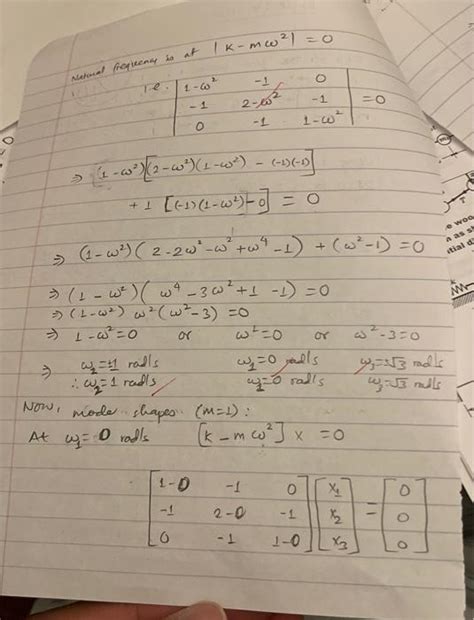 Natural frequency is at |K - mω²| = 0
i.e. | 1-ω² -1 0 |
| -1 2-ω² -1 | = 0
| 0 -1 1-ω² |
⇒ (1-ω²)[(2-ω²)(1-ω²) - (-1)(-1)]
+ 1 [(-1)(1-ω²)-0] = 0
⇒ (1-ω²)(2-2ω²-ω²+ω⁴-1) + (ω²-1) = 0
⇒ (1-ω²)(ω⁴-3ω²+1-1) = 0
⇒ (1-ω²) ω²(ω²-3) = 0
⇒ 1-ω²=0 or ω²=0 or ω²-3=0
⇒ ω₂=±1 rad/s ω₁=0 rad/s ω₃=±√3 rad/s
∴ ω₂=1 rad/s ω₁=0 rad/s ω₃=√3 rad/s
Now, mode shapes (m=1):
At ω₁= 0 rad/s [K-mω²] x = 0
[ 1-0 -1 0 ] [ x₁ ] [ 0 ]
[ -1 2-0 -1 ] [ x₂ ] = [ 0 ]
[ 0 -1 1-0 ] [ x₃ ] [ 0 ]